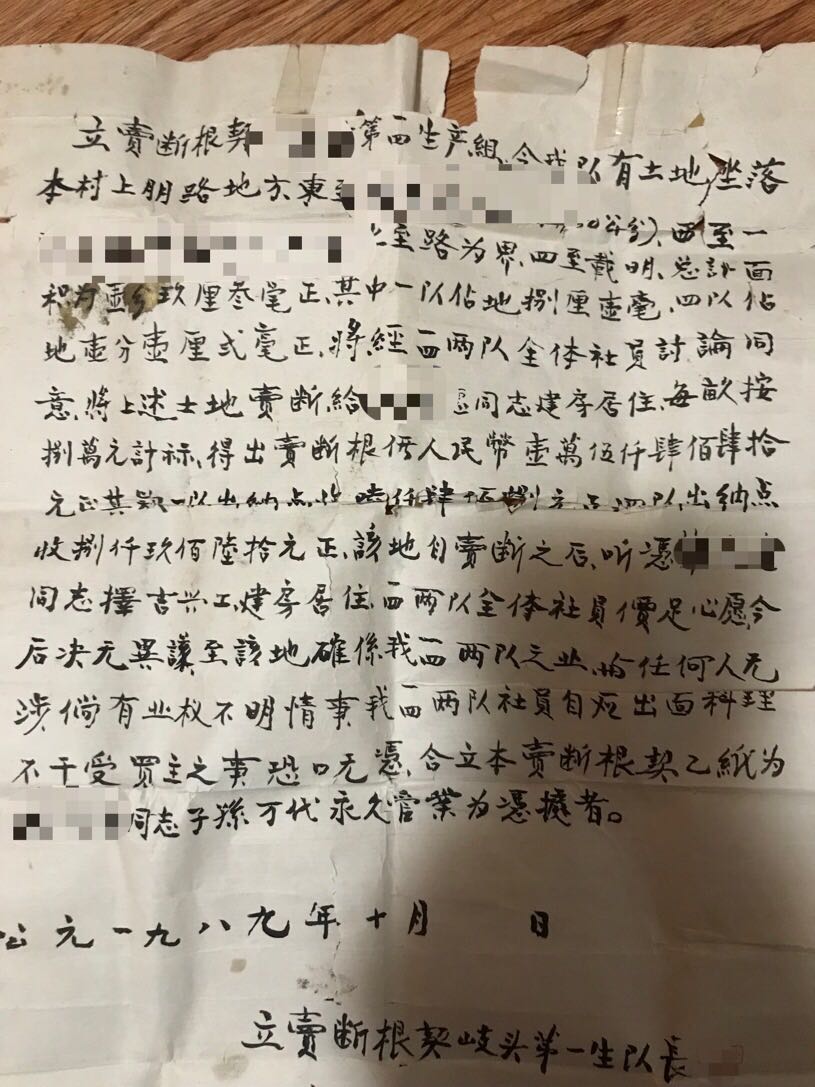 立賣断根契 第一四生产組、今我队有土地坐落
本村上朋路地方東至
至路为界、四至載明、总計面
和为壹分玖厘叁毫正、其中一队佔地捌厘壹毫、四队佔
地壹分壹厘弍毫正、将經一四两队全体社員討論同
意、将上述土地賣断給 同志建房居住、每畝按
捌萬元計祘、得出賣断根價人民幣壹萬伍仟肆佰肆拾
元正其 一队出納点收陸仟肆佰捌 四队出納点
收捌仟玖佰陸拾元正、該地自賣断之后、听憑
同志擇吉兴工、建房居住、一四两队全体社員價足心愿今
后决无異議至該地確係我一四两队之业、 任何人无
涉倘有业权不明情事我一四两队社員自应出面料理
不干受買主之事恐口无憑、合立本賣断根契乙紙为
同志子孫万代永久管業为憑據者。
公元一九八九年十月 日
立賣断根契岐头第一生队長